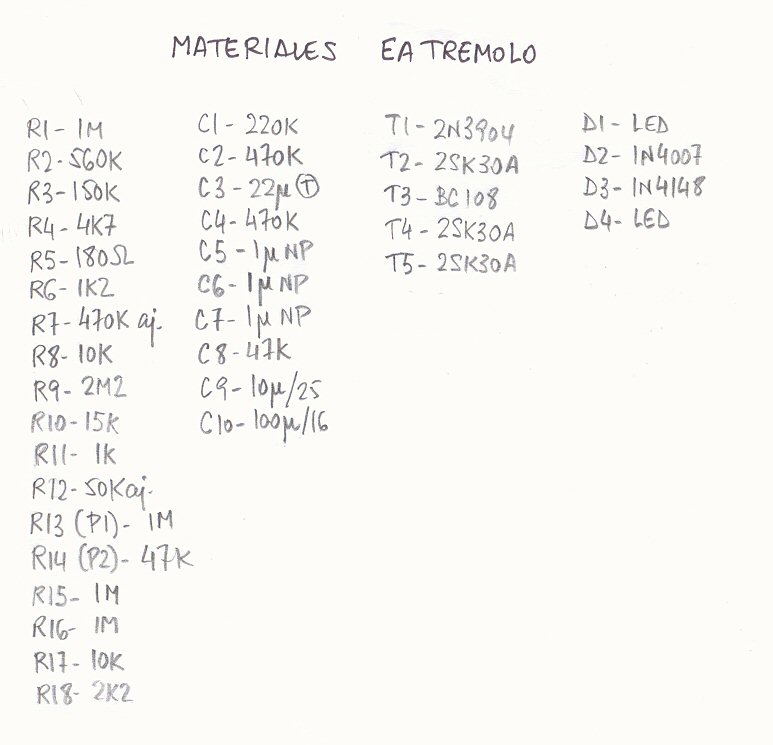 MATERIALES EA TREMOLO
R1- 1M
R2- 560K
R3- 150K
R4- 4K7
R5- 180Ω
R6- 1K2
R7- 470K aj.
R8- 10K
R9- 2M2
R10- 15K
R11- 1K
R12- 50K aj.
R13 (P1)- 1M
R14 (P2)- 47K
R15- 1M
R16- 1M
R17- 10K
R18- 2K2
C1- 220K
C2- 470K
C3- 22µ Ⓣ
C4- 470K
C5- 1µ NP
C6- 1µ NP
C7- 1µ NP
C8- 47K
C9- 10µ/25
C10- 100µ/16
T1- 2N3904
T2- 2SK30A
T3- BC108
T4- 2SK30A
T5- 2SK30A
D1- LED
D2- 1N4007
D3- 1N4148
D4- LED